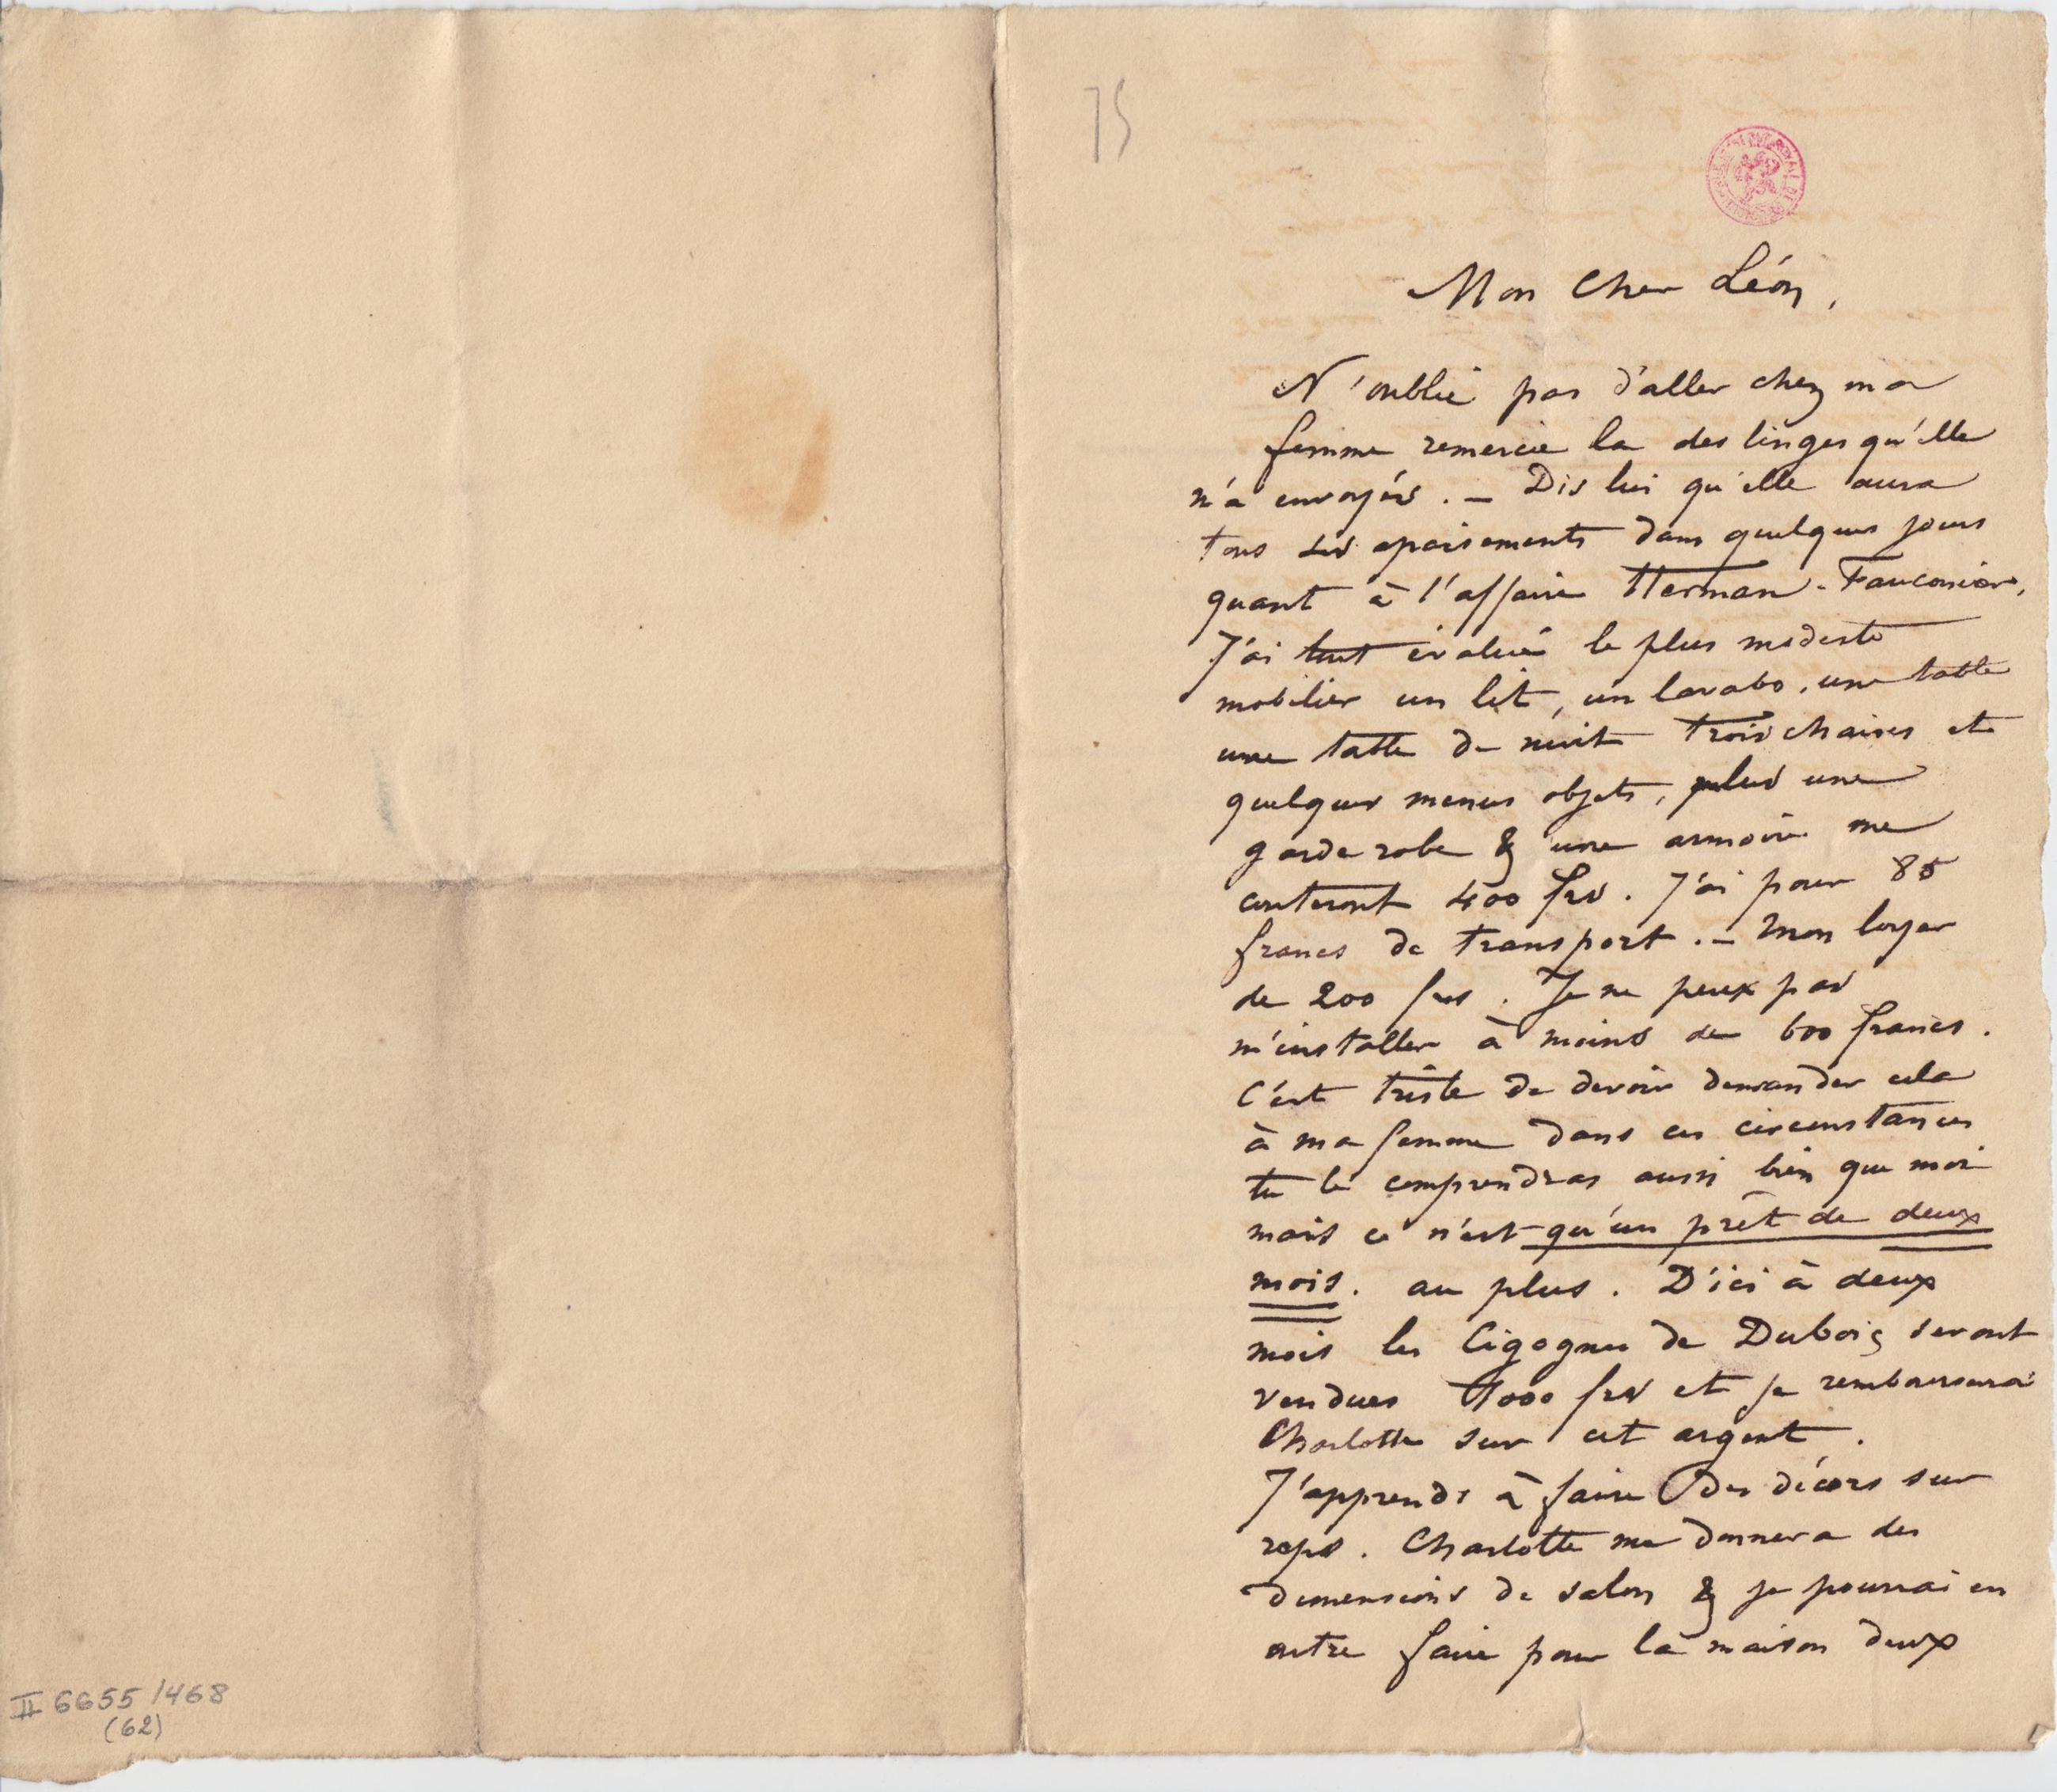 75
Mon Cher Léon,
N'oublie pas d'aller chez ma
femme remercie la des linges qu'elle
m'a envoyés. — Dis lui qu'elle aura
tous ses apaisements dans quelques jours
quant à l'affaire Herman-Fauconier,
J'ai tout évalué le plus modeste
mobilier un lit, un lavabo, une table
une table de nuit trois chaises et
quelques menus objets, plus une
garde robe & une armoire me
couteront 400 frs. J'ai pour 85
francs de transport. — Mon loyer
de 200 frs. Je ne peux pas
m'installer à moins de 600 francs.
C'est triste de devoir demander cela
à ma femme dans ces circonstances
tu le comprendras aussi bien que moi
mais ce n'est qu'un prêt de deux
mois. au plus. D'ici à deux
mois les Cigognes de Dubois seront
vendues 1000 frs et je rembourserai
Charlotte sur cet argent.
J'apprends à faire des décors sur
reps. Charlotte me donnera des
dimensions de salon & je pourrai en
outre faire pour la maison deux
II 6655/468
(62)